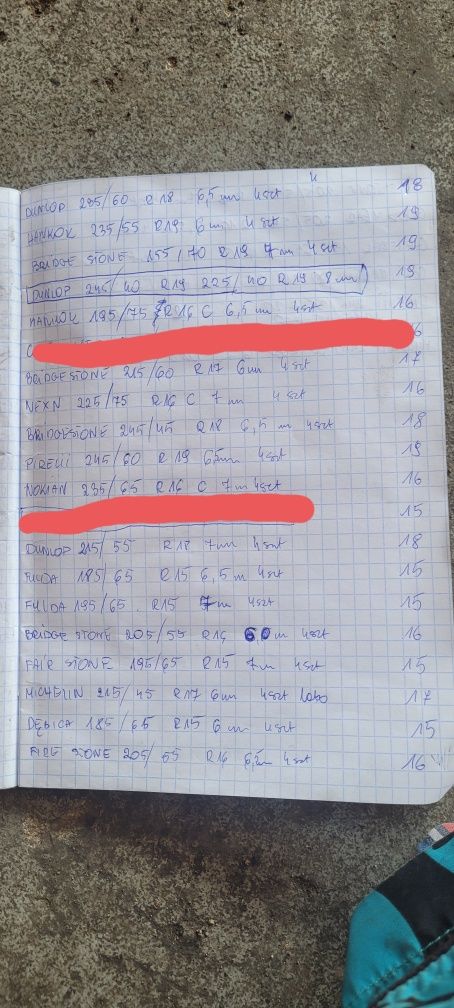 DUNLOP 285/60 R18 6,5 mm 4szt 18
HANKOK 235/55 R19 6mm 4szt 19
BRIDGE STONE 155/70 R19 7mm 4szt 19
DUNLOP 245/40 R19 225/40 R19 8mm 19
HANKOK 195/75 R16 C 6,5mm 4szt 16
BRIDGESTONE 215/60 R17 6mm 4szt 17
NEXN 225/75 R16 C 7mm 4szt 16
BRIDGESTONE 245/45 R18 6,5m 4szt 18
PIRELLI 245/60 R19 6,5mm 4szt 19
NOKIAN 235/65 R16 C 7m 4szt 16
15
DUNLOP 215/55 R18 7mm 4szt 18
FULDA 185/65 R15 6,5m 4szt 15
FULDA 195/65 R15 7m 4szt 15
BRIDGE STONE 205/55 R16 6,0m 4szt 16
FAIR STONE 195/65 R15 7m 4szt 15
MICHELIN 215/45 R17 6mm 4szt 17
DĘBICA 185/65 R15 6mm 4szt 15
FIRE STONE 205/55 R16 6,5m 4szt 16